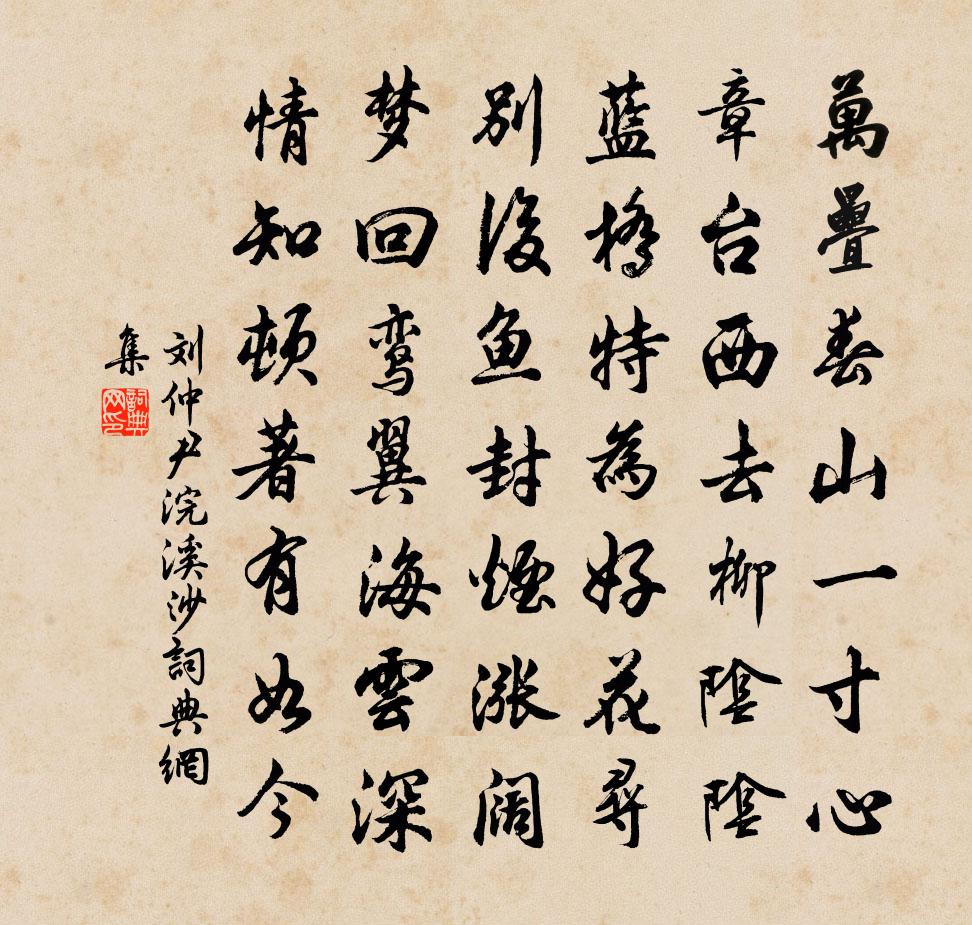 萬疊春山一寸心
章台西去柳陰陰
藍橋特為好花尋
別後魚封煙漲闊
梦回鸾翼海雲深
情知頓著有如今
刘仲尹浣溪沙詞典網
集
詞典網印